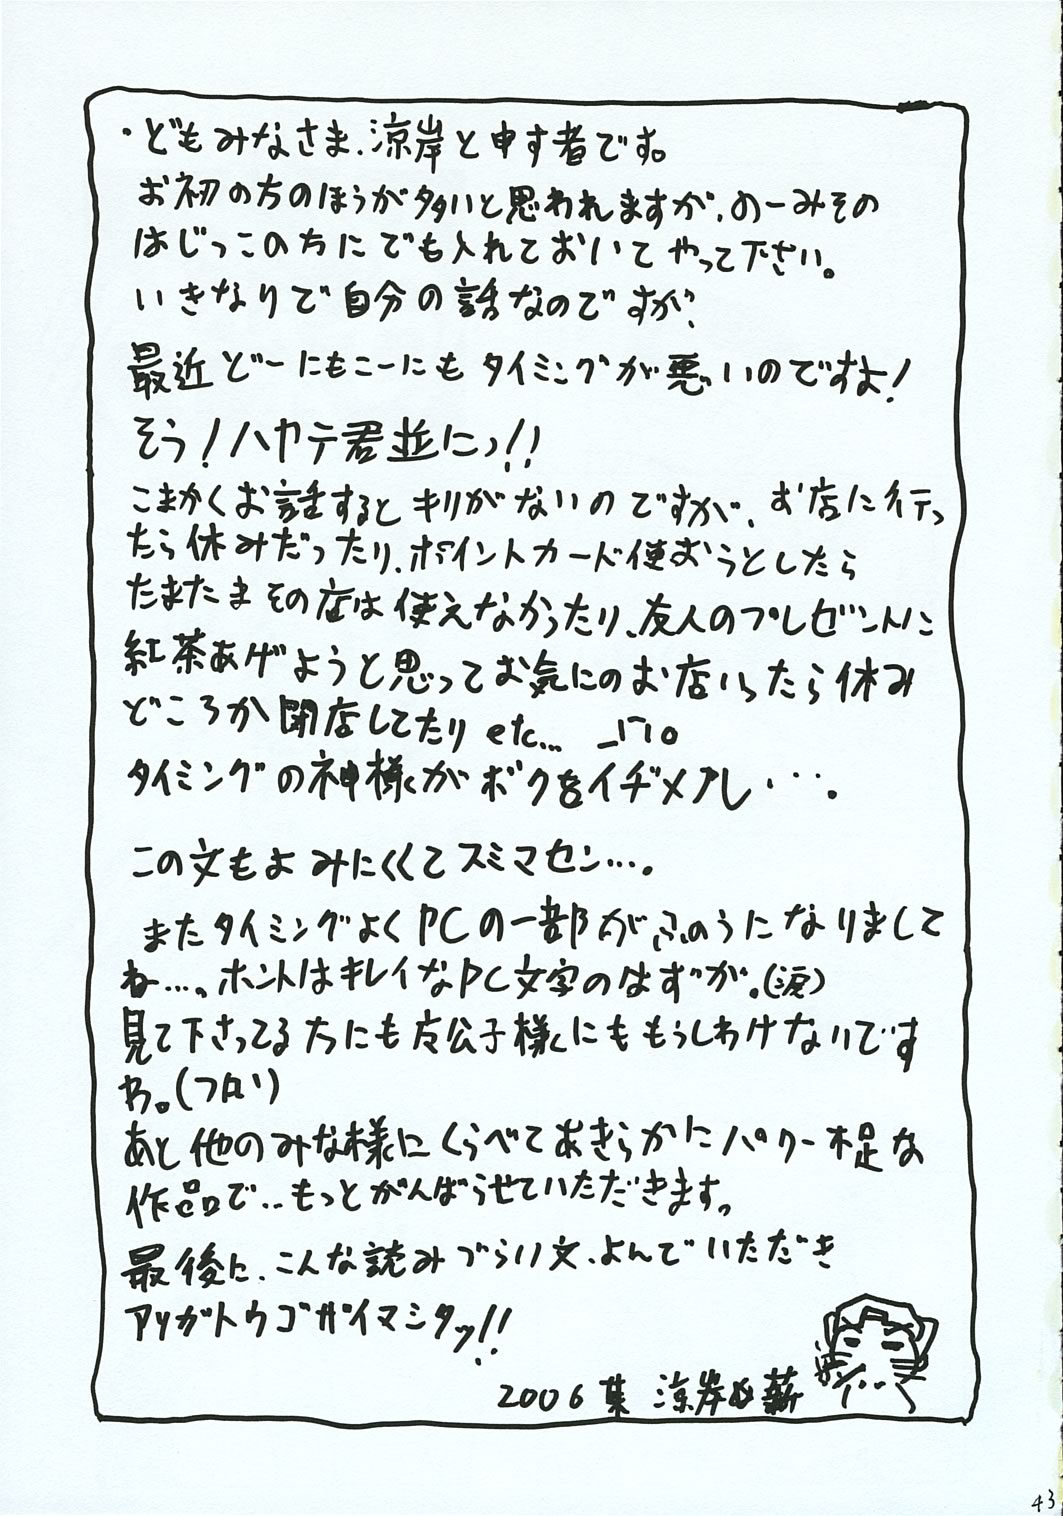 ・どもみなさま、涼岸と申す者です。
お初の方のほうが多いと思われますが、のーみその
はじっこの方にでも入れておいてやって下さい。
いきなりで自分の話なのですが、
最近どーにもこーにもタイミングが悪いのですよ!
そう!ハヤテ君並にっ!!
こまかくお話するとキリがないのですが、お店に行っ
たら休みだったり、ポイントカード使おうとしたら
たまたまその店は使えなかったり、友人のプレゼントに
紅茶あげようと思ってお気にのお店いったら休み
どころか閉店してたり etc... _| ̄|○
タイミングの神様がボクをイヂメル・・・。
この文もよみにくくてスミマセン…。
またタイミングよくPCの一部がふのうになりまして
ね…。ホントはキレイなPC文字のはずが。(涙)
見て下さってる方にも左公子様にももうしわけないです
わ。(フロリ)
あと他のみな様にくらべてあきらかにパワー不足な
作品で‥もっとがんばらせていただきます。
最後に、こんな読みづらい文、よんでいただき
アリガトウゴザイマシタッ!!
2006 涼岸 薪
43